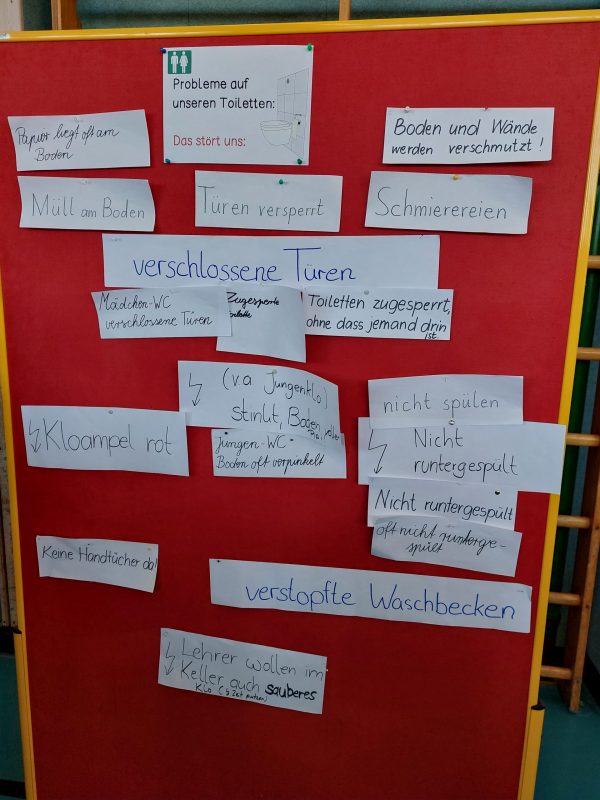 Probleme auf
unseren Toiletten:
Das stört uns:
Papier liegt oft am
Boden
Boden und Wände
werden verschmutzt!
Müll am Boden
Türen versperrt
Schmierereien
verschlossene Türen
Mädchen-WC
verschlossene Türen
Zugesperrte
Toilette
Toiletten zugesperrt,
ohne dass jemand drin
ist.
(v.a. Jungenklo)
stinkt, Boden voller
nicht spülen
Kloampel rot
Jungen-WC
Boden oft verpinkelt
Nicht
runtergespült
Nicht runtergespült
oft nicht runterge-
spült
Keine Handtücher da!
verstopfte Waschbecken
Lehrer wollen im
Keller auch sauberes
Klo